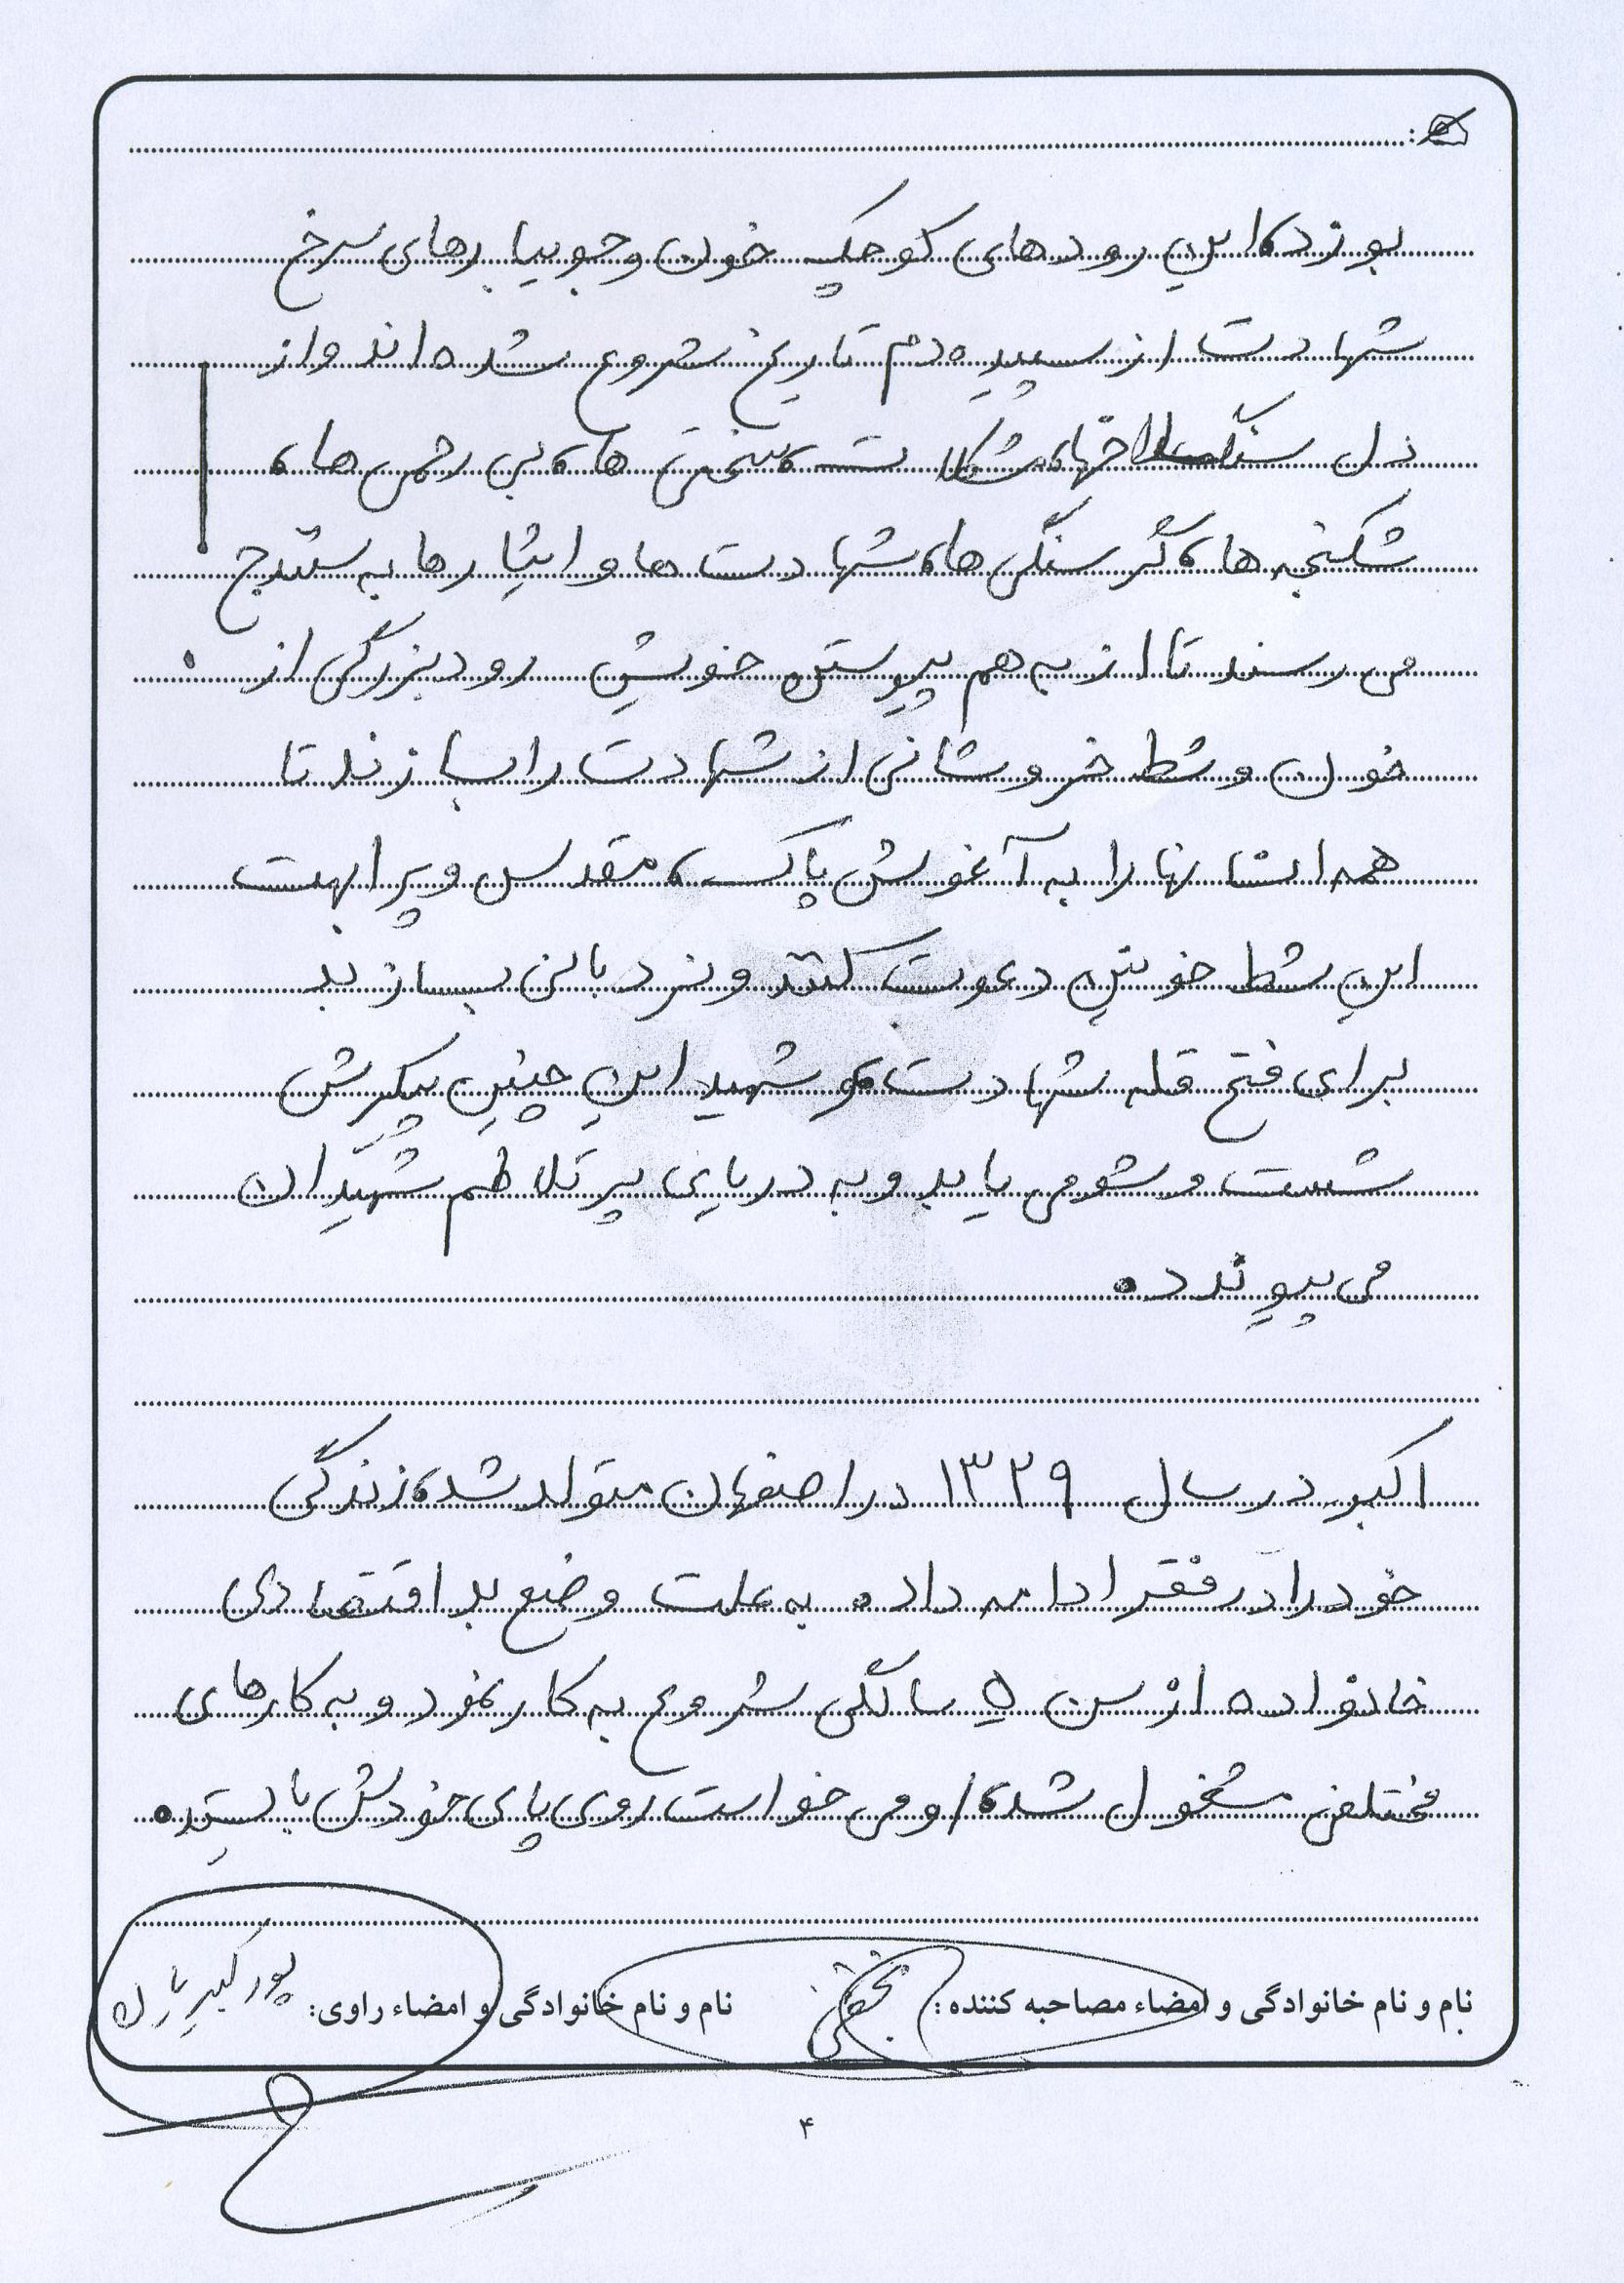 بوزد، این رودهای کوچک خون و جویبارهای سرخ
شهادت از سپیده دم تاریخ شروع شده اند و از
دل سنگلاخها، مشکلات، سختی ها، بی رحمی ها،
شکنجه ها، گرسنگی ها، شهادت ها و ایثارها به ستدج
می رسند تا از به هم پیوستن خویش رود بزرگی از
خون و شط خروشانی از شهادت را بسازند تا
همه انسانها را به آغوش پاک، مقدس و پر ابهت
این شط خونین دعوت کنند و نردبانی بسازند
برای فتح قله شهادت و شهید این چنین پیکرش
شست و شو می یابد و به دریای پر تلاطم شهیدان
می پیوندد.
اکبر در سال ۱۳۲۹ در اصفهان متولد شد، زندگی
خود را در فقر ادامه داد. به علت وضع بد اقتصادی
خانواده از سن ۵ سالگی شروع به کار نمود و به کارهای
مختلفی مشغول شد، او می خواست روی پای خودش بایستد.
نام و نام خانوادگی و امضاء مصاحبه کننده: نام و نام خانوادگی و امضاء راوی:
۴